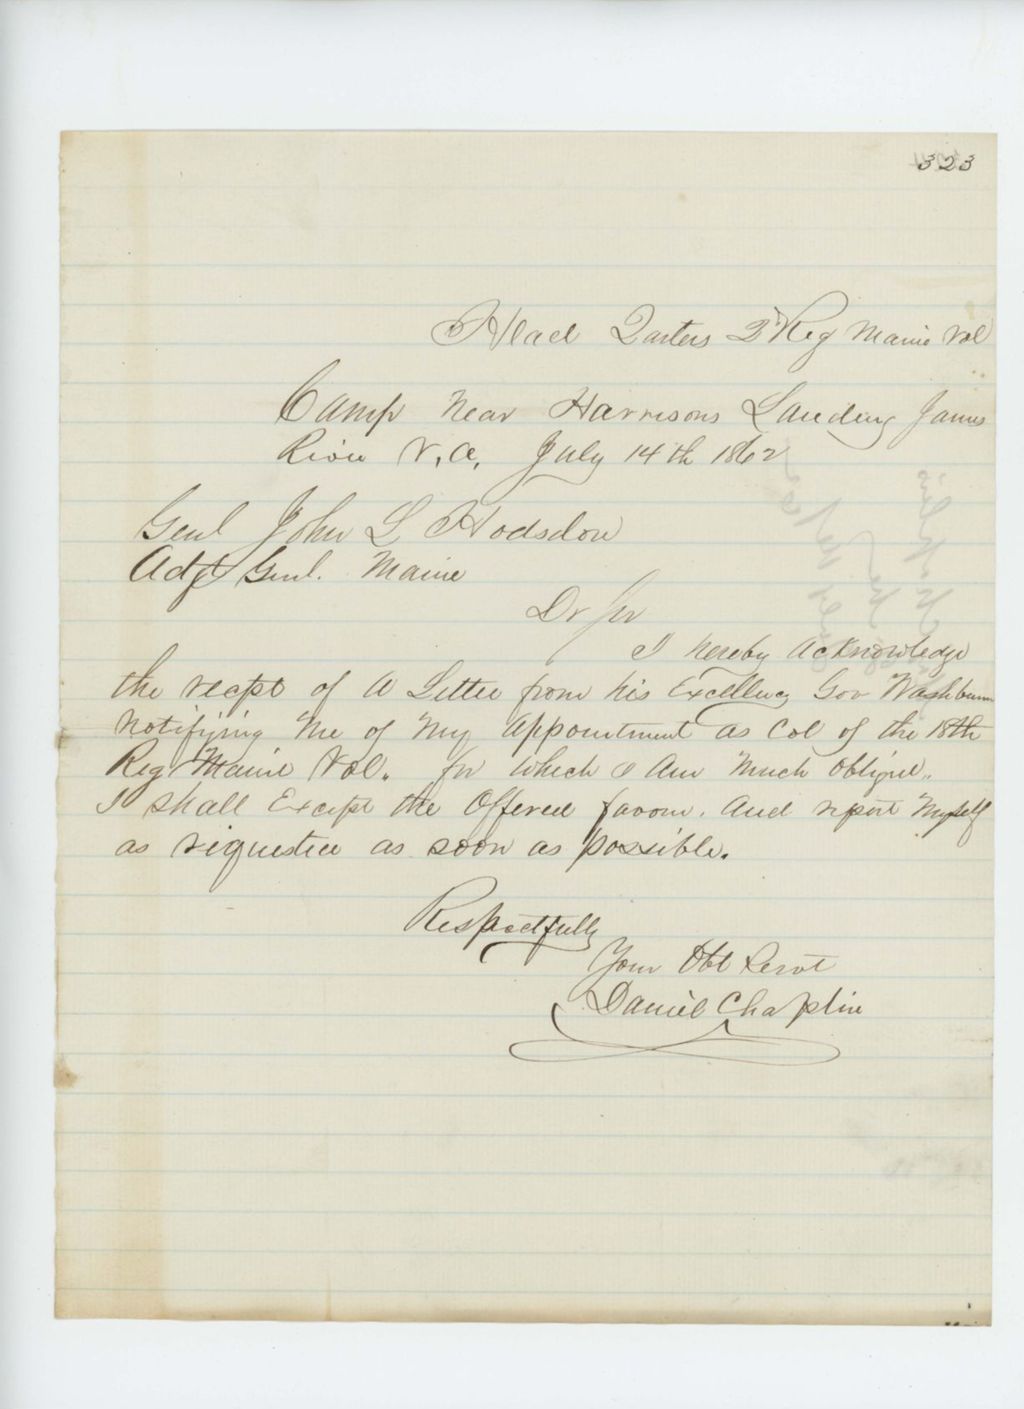 323
Head Qarters 2d Reg Maine Vol
Camp Near Harrisons Landing James
River V.A. July 14th 1862
Genl John L Hodsdon
Adjt Genl. Maine
Dr Sir
I hereby Acknowledge
the recept of A Letter from his Excellency Gov Washburn
Notifying Me of My Appointment as Col of the 18th
Reg Maine Vol. for Which I Am Much Obliged.
I shall Except the Offered favour. And report Myself
as requested as soon as possible.
Respectfully
Your Obt Servt
Daniel Chaplin